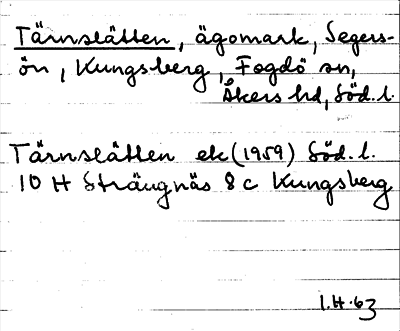 Tärnslätten, ägomark, Segers-
ön, Kungsberg, Fogdö sn,
Åkers hd, Söd. l.
Tärnslätten ek (1959) Söd. l.
10 H Strängnäs 8 c Kungsberg
I.H. 63